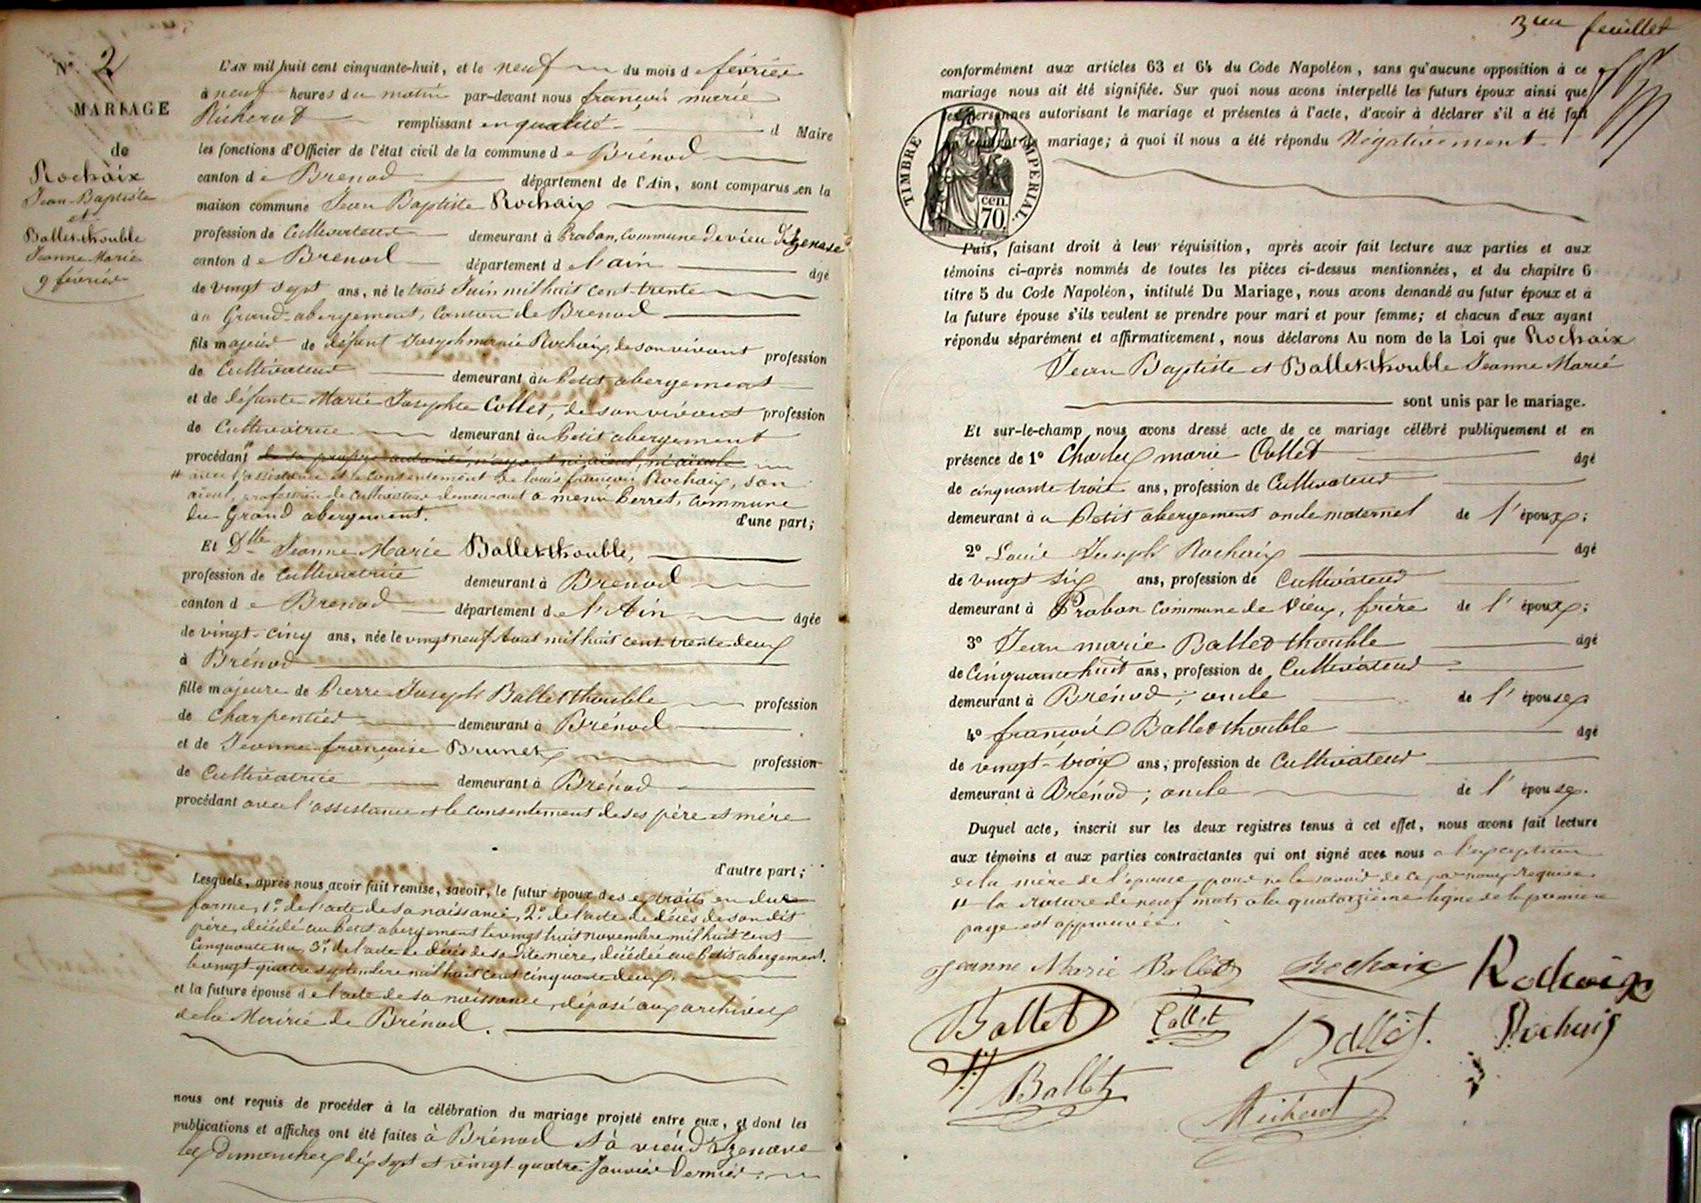 N° 2
MARIAGE
de
Rochaix
Jean Baptiste
et
Ballet-thouble
Jeanne Marie
9 février
L'AN mil huit cent cinquante-huit, et le neuf du mois de février
à neuf heures du matin par-devant nous françois marie
Richerot remplissant en qualité d Maire
les fonctions d'Officier de l'état civil de la commune de Brénod
canton de Brenod département de l'Ain, sont comparus en la
maison commune Jean Baptiste Rochaix
profession de Cultivateur demeurant à Praban, Commune de vieu d'Izenave
canton de Brenod département de l'ain âgé
de vingt sept ans, né le trois Juin mil huit cent trente
au Grand-abergement, Canton de Brenod
fils majeur de défunt Joseph marie Rochaix, de son vivant profession
de Cultivateur demeurant au Petit abergement
et de défunte Marie Josephte Collet, de son vivant profession
de Cultivatrice demeurant au Petit abergement
procédant de sa propre autorité, n'ayant ni aïeul, ni aïeule
avec l'assistance et le consentement de louis françois Rochaix, son
aïeul, profession de cultivateur demeurant à menu Perret, commune
du Grand abergement.
d'une part;
Et Dlle Jeanne Marie Ballet-thouble,
profession de cultivatrice demeurant à Brénod
canton de Brenod département de l'Ain âgée
de vingt-cinq ans, née le vingt neuf Aout mil huit cent trente deux
à Brénod
fille majeure de Pierre Joseph Ballet thouble profession
de Charpentier demeurant à Brénod
et de Jeanne françoise Brunet profession
de Cultivatrice demeurant à Brénod
procédant avec l'assistance et le consentement de ses père et mère
d'autre part;
Lesquels, après nous avoir fait remise, savoir, le futur époux des extraits en due
forme, 1° de l'acte de sa naissance, 2° de l'acte de décès de son dit
père, décédé au Petit abergement le vingt huit novembre mil huit cent
Cinquante un, 3° de l'acte de décès de sa dite mère, décédée au Petit abergement,
le vingt quatre septembre mil huit cent cinquante deux.
et la future épouse de l'acte de sa naissance, déposé aux archives
de la Mairie de Brénod.
nous ont requis de procéder à la célébration du mariage projeté entre eux, et dont les
publications et affiches ont été faites à Brénod et à vieu d'Izenave
les Dimanches dix sept et vingt quatre Janvier dernier.
3me feuillet
conformément aux articles 63 et 64 du Code Napoléon, sans qu'aucune opposition à ce
mariage nous ait été signifiée. Sur quoi nous avons interpellé les futurs époux ainsi que
les personnes autorisant le mariage et présentes à l'acte, d'avoir à déclarer s'il a été fait
mariage; à quoi il nous a été répondu Négativement
TIMBRE IMPERIAL.
cen.
70.
Puis, faisant droit à leur réquisition, après avoir fait lecture aux parties et aux
témoins ci-après nommés de toutes les pièces ci-dessus mentionnées, et du chapitre 6
titre 5 du Code Napoléon, intitulé Du Mariage, nous avons demandé au futur époux et à
la future épouse s'ils veulent se prendre pour mari et pour femme; et chacun d'eux ayant
répondu séparément et affirmativement, nous déclarons Au nom de la Loi que Rochaix
Jean Baptiste et Ballet-thouble Jeanne Marie
sont unis par le mariage.
Et sur-le-champ nous avons dressé acte de ce mariage célébré publiquement et en
présence de 1° Charles marie Collet âgé
de cinquante trois ans, profession de Cultivateur
demeurant à u Petit abergement oncle maternel de l'époux;
2° Louis Joseph Rochaix âgé
de vingt six ans, profession de Cultivateur
demeurant à Praban Commune de Vieu, frère de l'époux;
3° Jean marie Ballet thouble âgé
de Cinquante huit ans, profession de Cultivateur
demeurant à Brénod; oncle de l'épouse
4° françois Ballet thouble âgé
de vingt-trois ans, profession de Cultivateur
demeurant à Brénod; oncle de l'épouse.
Duquel acte, inscrit sur les deux registres tenus à cet effet, nous avons fait lecture
aux témoins et aux parties contractantes qui ont signé avec nous à l'exception
de la mère de l'épouse pour ne le savoir de ce par nous requise.
la rature de neuf mots à la quatorzième ligne de la première
page est approuvée.
Jeanne Marie Ballet Rochaix Rochaix
Ballet Collet Ballet. Rochaix
Ballet
Richerot